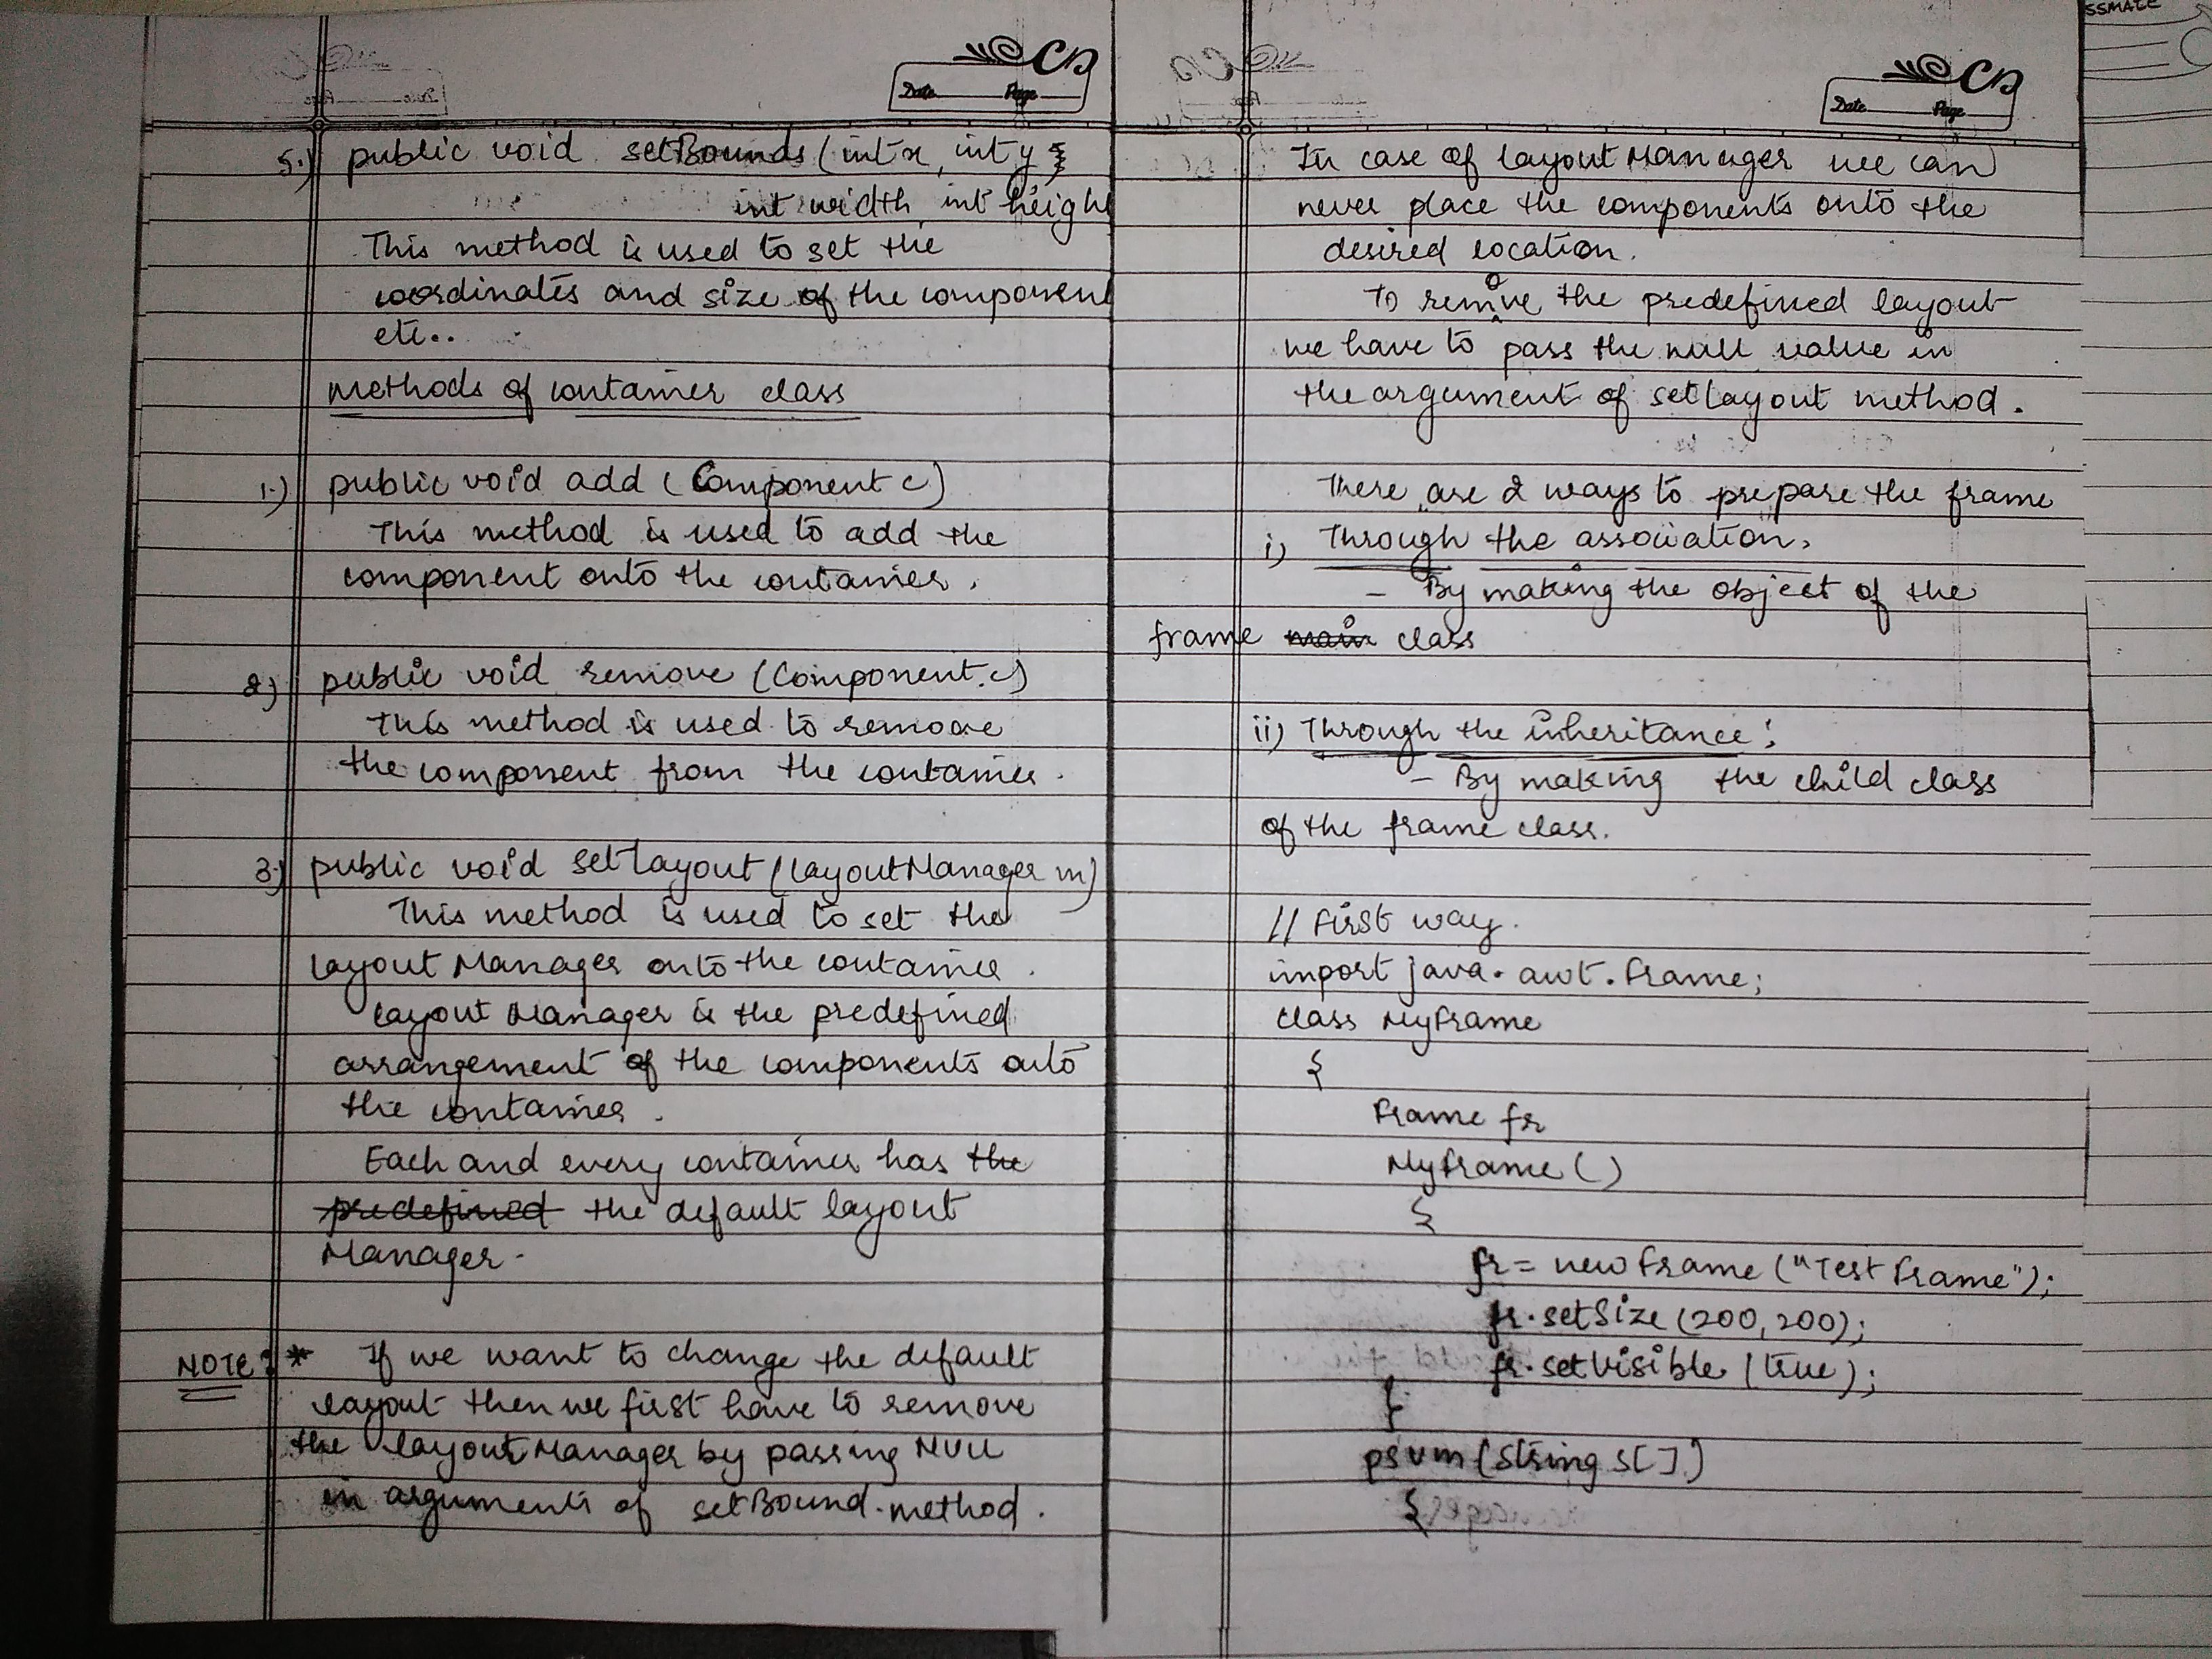 CD
Date Page
5.) public void setBounds (int x, int y
int width, int heigh
This method is used to set the
coordinates and size of the component
etc..
methods of container class
1.) public void add (Component c)
This method is used to add the
component onto the container.
2) public void remove (Component c)
This method is used to remove
the component from the container.
3) public void setlayout (layoutManager m)
This method is used to set the
layout Manager onto the container.
layout Manager is the predefined
arrangement of the components onto
the container.
Each and every container has the
predefined the default layout
Manager.
NOTE: * If we want to change the default
layout then we first have to remove
the layoutManager by passing NULL
in arguments of setBound method.
CD
Date Page
In case of layoutManager we can
never place the components onto the
desired location.
To remove the predefined layout
we have to pass the null value in
the argument of setlayout method.
There are 2 ways to prepare the frame
i) Through the association,
- By making the object of the
frame main class
ii) Through the inheritance:
- By making the child class
of the frame class.
// First way.
import java.awt.Frame;
class MyFrame
{
Frame fr
MyFrame ()
{
fr = new Frame ("Test Frame");
fr.setSize (200, 200);
fr.setVisible (true);
}
psvm (String s[])
{
SSMATE